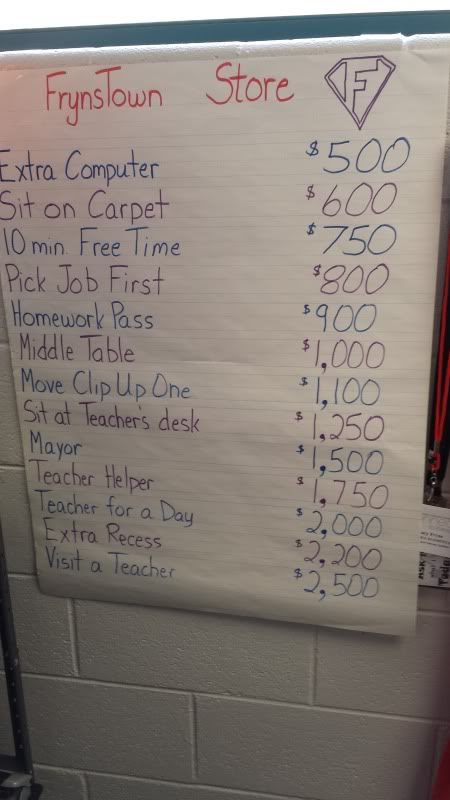 FrynsTown Store F
Extra Computer $500
Sit on Carpet $600
10 min. Free Time $750
Pick Job First $800
Homework Pass $900
Middle Table $1,000
Move Clip Up One $1,100
Sit at Teacher's desk $1,250
Mayor $1,500
Teacher Helper $1,750
Teacher for a Day $2,000
Extra Recess $2,200
Visit a Teacher $2,500